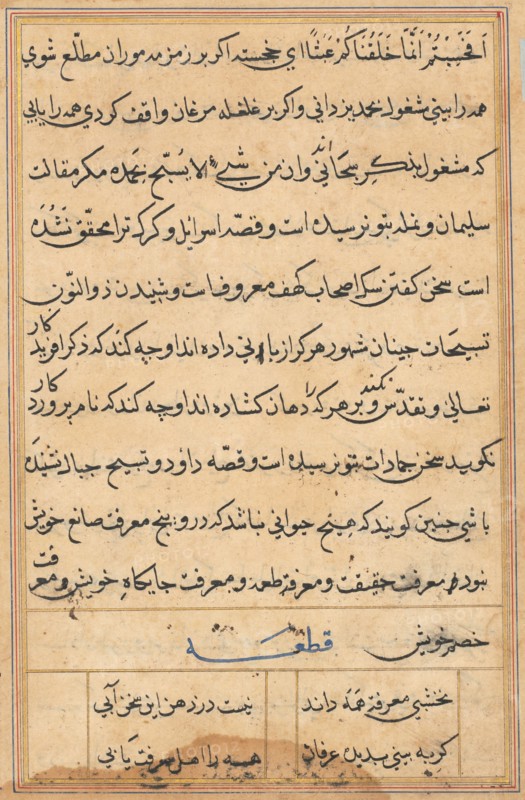 اَفَحَسِبْتُمْ اَنَّمَا خَلَقْنَاكُمْ عَبَثًا ای خجسته اکر بر زمزمه موران مطلع شوی
همه را بینی مشغول بحمد یزدانی و اکر بر غلغله مرغان واقف کردی همه را یابی
که مشغول بذکر سبحانی اند وان من شیء الا یُسبّح بحمده مکر مقالت
سلیمان و نمله بتو نرسیده است و قصّه اسرائیل و کرک ترا محقّق نَشُدَه
است سخن کفتن سک اصحاب کهف معروفست و شنیدن ذوالنّون
تسبیحات حیتان مشهور هر کرا زبانی داده اند او چه کند که ذکر افریدکار
تعالی و تقدّس نکند و بر هر که را دهان کشاده اند او چه کند که نام پروردکار
نکوید سخن جمادات بتو نرسیده است و قصّه داود و تسبیح جبال نشنیده
باشی چنین کویند که هیچ حیوانی نباشد که درو پنج معرفت صانع خویش
نبود و معرفت حقیقت و معرفة طعمه و معرفت جایکاه خویش و معرفت
خصم خویش قطعه
نخشبی معرفة همه داند نیست در ذهن این سخن آبی
کر به بینی بدیده عرفان همه را اهل معرفت یابی